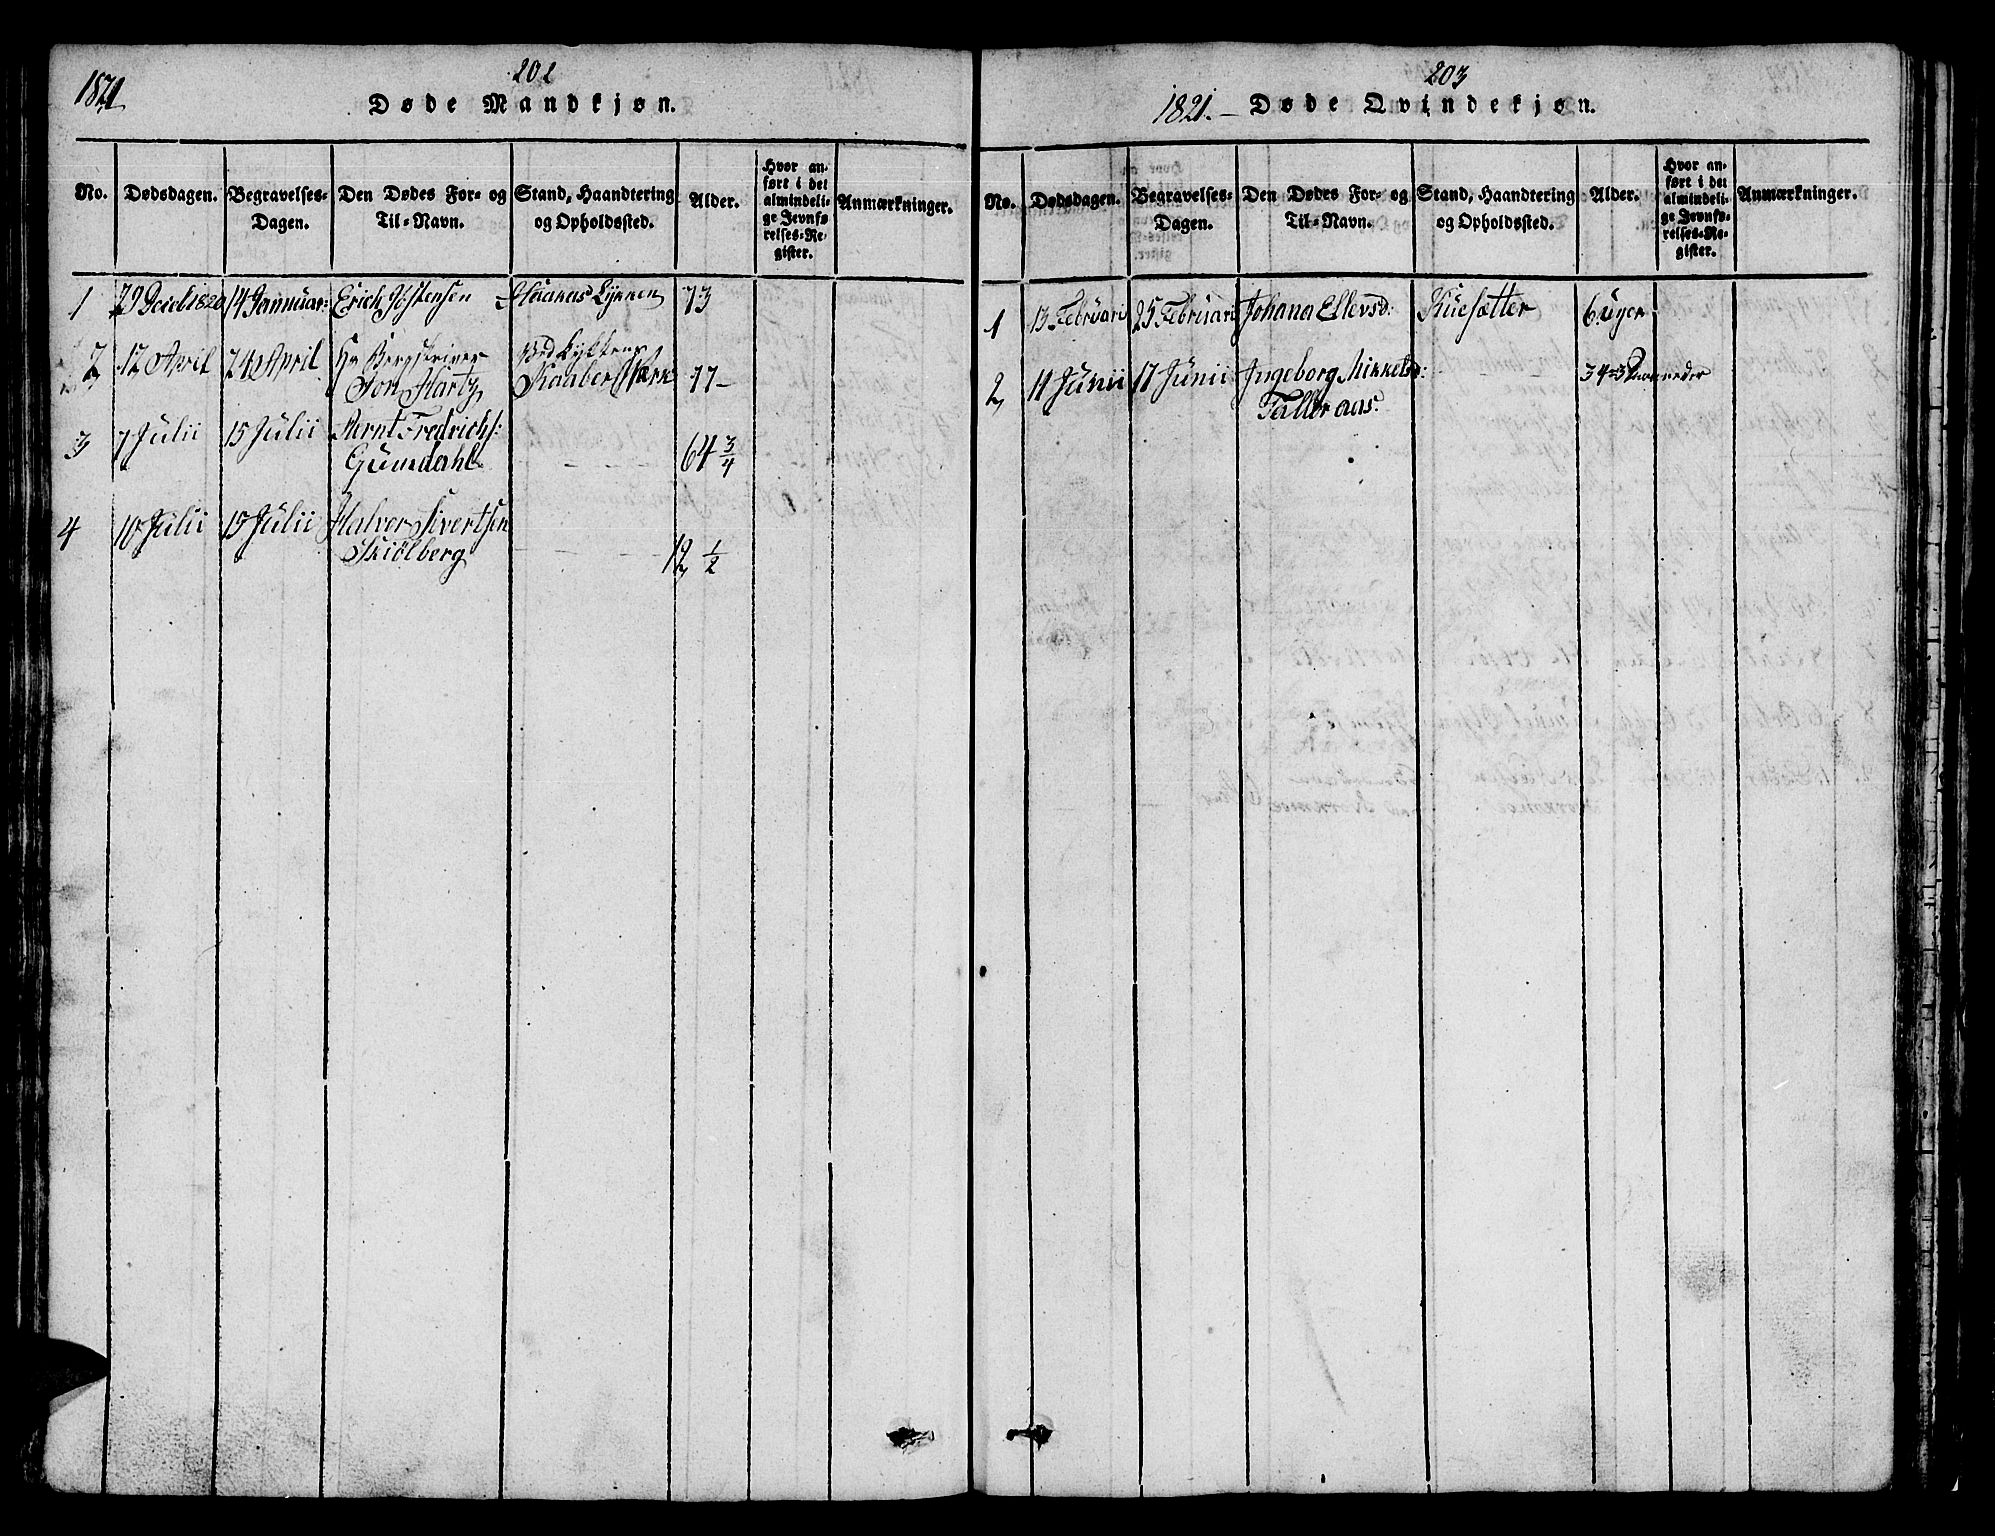 1821
202
Døde Mandkjøn.
No. Dødsdagen. Begravelses-Dagen. Den Dødes For- og Til-Navn. Stand, Haandtering og Opholdssted. Alder. Hvor anført i det almindelige Jevnførelses-Register. Anmærkninger.
1 29 1820 14 Januar: Erich Jostensen Lykken 73
2 12 April 24 April Hr Bergskriver Ved Lykkens
Jon Hartz Kaaber Værk 77 –
3 7 Julii 15 Julii Arnt Fredrichs:
Gunndahl 64 3/4
4 10 Julii 15 Julii Halvor Sivertsen
Skiølberg 19 1/2
203
1821. – Døde Qvindekjøn.
No. Dødsdagen. Begravelses-Dagen. Den Dødes For- og Til-Navn. Stand, Haandtering og Opholdssted. Alder. Hvor anført i det almindelige Jevnførelses-Register. Anmærkninger.
1 13 Februari 25 Februari Johana Ellevsd: Kuesætter 6 Uger
2 11 Junii 17 Junii Ingeborg Mikkelsd: 34 = 3 Maaneder
Talleraas.